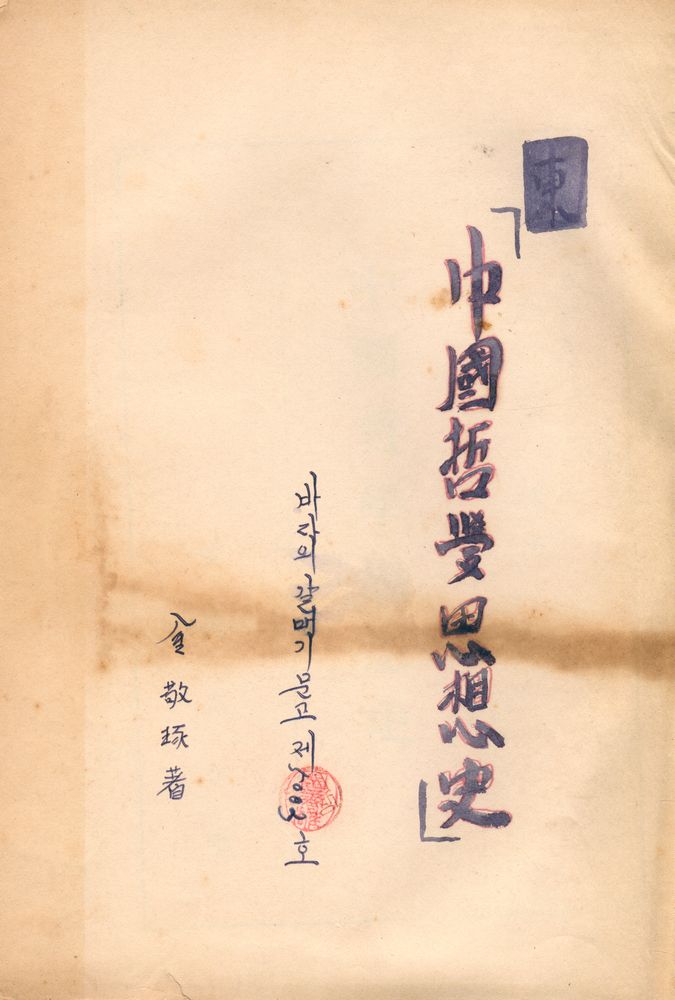 東
「中國哲學思想史」
바다의 갈매기 문고 제 호
金敬琢著